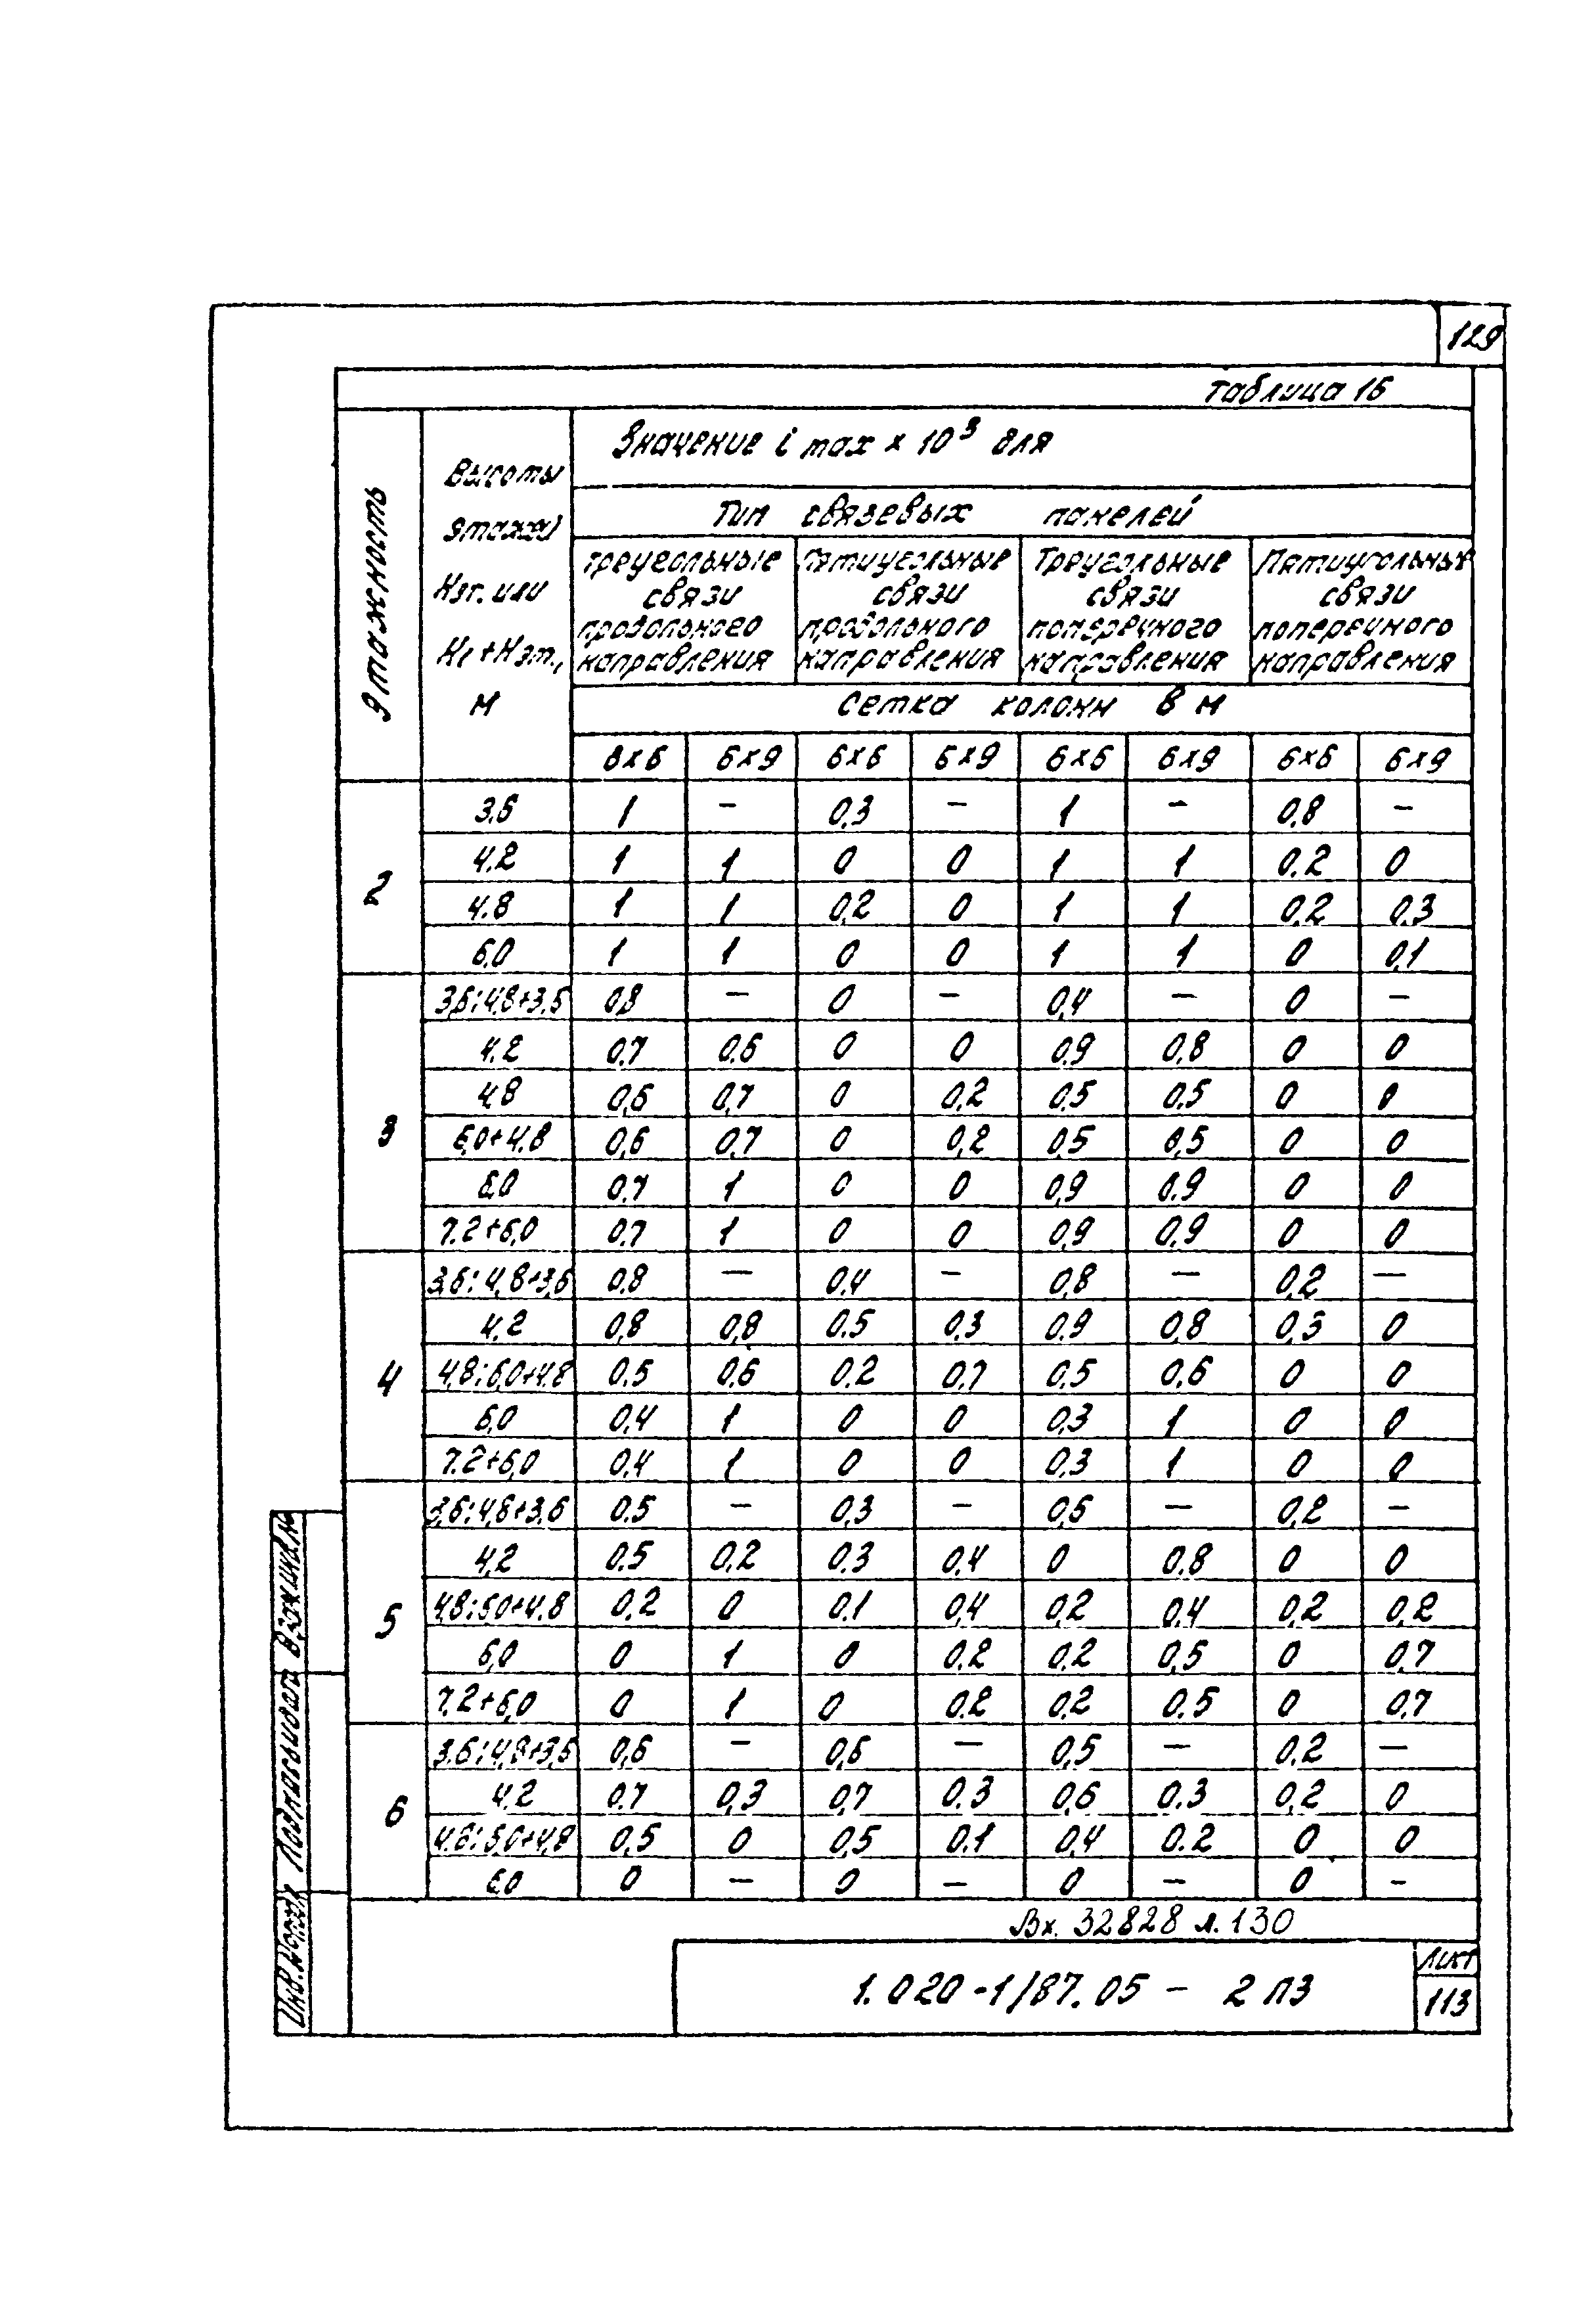 129
Таблица 16
Этажность
Высоты
этажей
Нэт. или
Н1 + Нэт.,
м
Значение i max × 10³ для
Тип связевых панелей
Треугольные связи продольного направления
Пятиугольные связи продольного направления
Треугольные связи поперечного направления
Пятиугольные связи поперечного направления
Сетка колонн в м
6×6 6×9 6×6 6×9 6×6 6×9 6×6 6×9
2
3.6 1 — 0.3 — 1 — 0.8 —
4.2 1 1 0 0 1 1 0.2 0
4.8 1 1 0.2 0 1 1 0.2 0.3
6.0 1 1 0 0 1 1 0 0.1
3
3,6; 4,8+3.6 0.8 — 0 — 0,4 — 0 —
4.2 0.7 0.6 0 0 0.9 0,8 0 0
4,8 0,6 0,7 0 0,2 0.5 0.5 0 0
6,0+4.8 0,6 0.7 0 0,2 0,5 0,5 0 0
6.0 0.7 1 0 0 0,9 0.9 0 0
7.2+6,0 0.7 1 0 0 0,9 0.9 0 0
4
3,6; 4,8+3,6 0.8 — 0.4 — 0,8 — 0.2 —
4,2 0,8 0,8 0.5 0.3 0.9 0,8 0,3 0
4,8; 6,0+4.8 0.5 0.6 0.2 0.7 0.5 0,6 0 0
6,0 0,4 1 0 0 0,3 1 0 0
7.2+6,0 0.4 1 0 0 0,3 1 0 0
5
3,6; 4,8+3.6 0.5 — 0,3 — 0,6 — 0,2 —
4,2 0.5 0,2 0.3 0,4 0 0,8 0 0
4,8; 6.0+4.8 0,2 0 0.1 0,4 0,2 0,4 0,2 0,2
6,0 0 1 0 0.2 0.2 0,5 0 0,7
7,2+6,0 0 1 0 0.2 0,2 0.5 0 0,7
6
3.6; 4,8+3,6 0,6 — 0,6 — 0,5 — 0.2 —
4.2 0.7 0,3 0,7 0.3 0,6 0.3 0,2 0
4.8; 6,0+4,8 0,5 0 0,5 0.1 0,4 0.2 0 0
6.0 0 — 0 — 0 — 0 —
Вх. 32828 л. 130
1.020-1/87.05 — 2 ПЗ
Лист
113
Инв.№подл. Подпись и дата Взам.инв.№